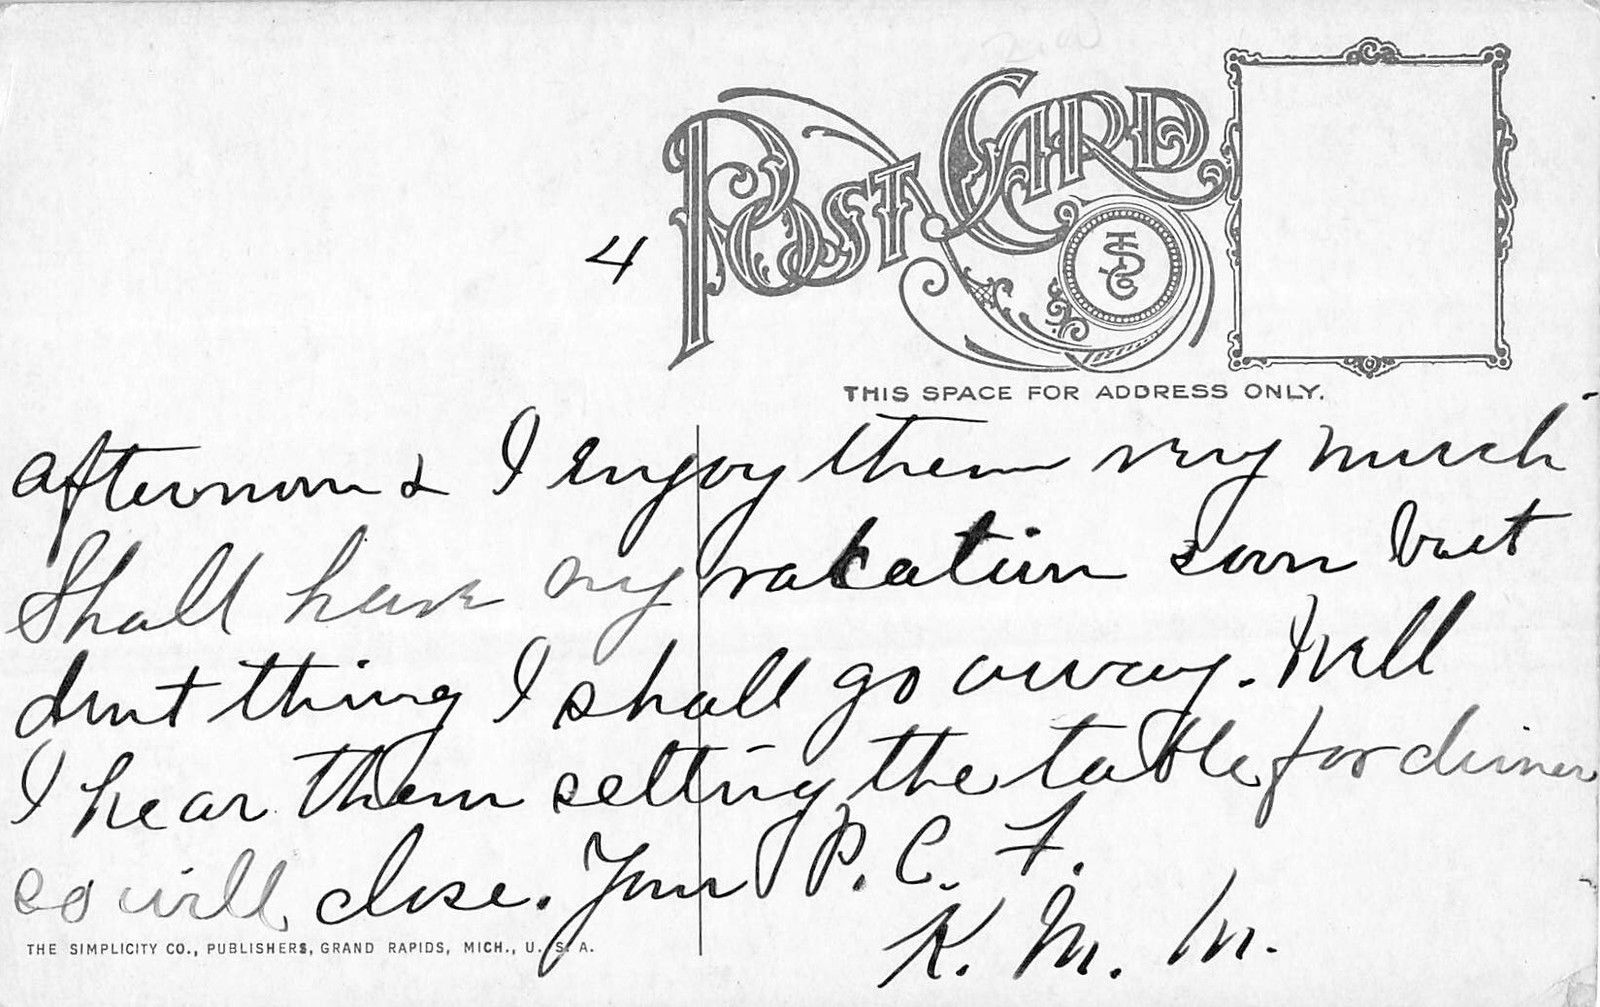 POST CARD
TSCo
4
THIS SPACE FOR ADDRESS ONLY.
afternoon & I enjoy them very much
Shall have my vakation soon but
dont thing I shall go away. Well
I hear them setting the table for dinner
so will close. Your P. C. F.
K. M. M.
THE SIMPLICITY CO., PUBLISHERS, GRAND RAPIDS, MICH., U. S. A.